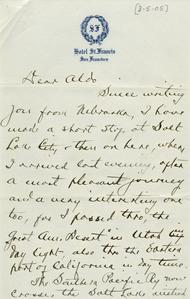 [3-5-05]
SF
Hotel St. Francis
San Francisco
Dear Aldo
Since writing
you from Nebraska, I have
made a short stop at Salt
Lake City & then on here, where
I arrived last evening, after
a most pleasant journey
and a very interesting one
too, for I passed thro the
"Great Am. Desert" in Utah by
day light, also thro the Eastern
part of California in day time.
The Southern Pacific Ry now
crosses the Salt Lake instead